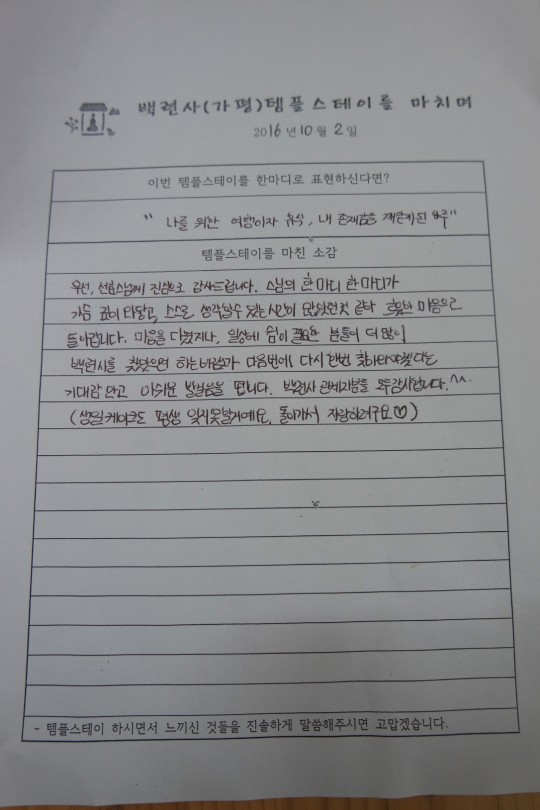 백련사(가평)템플스테이를 마치며
2016년 10월 2일
이번 템플스테이를 한마디로 표현하신다면?
" 나를 위한 여행이자 휴식, 내 존재감을 깨닫게된 하루"
템플스테이를 마친 소감
우선, 선효스님께 진심으로 감사드립니다. 스님의 한마디 한마디가
가슴 깊이 와닿고, 스스로 생각할수 있는시간이 많았던것 같아 흐뭇한 마음으로
돌아갑니다. 마음을 다쳤거나, 일상에 쉼이 필요한 분들이 더 많이
백련사를 찾았으면 하는바램과 다음번에 다시한번 찾아와야겠다는
기대감 안고 아쉬운 발걸음을 뗍니다. 백련사 관계자분들 모두감사합니다.^^
(생일케이크도 평생 잊지못할거예요, 돌아가서 자랑하려구요♡)
- 템플스테이 하시면서 느끼신 것들을 진솔하게 말씀해주시면 고맙겠습니다.